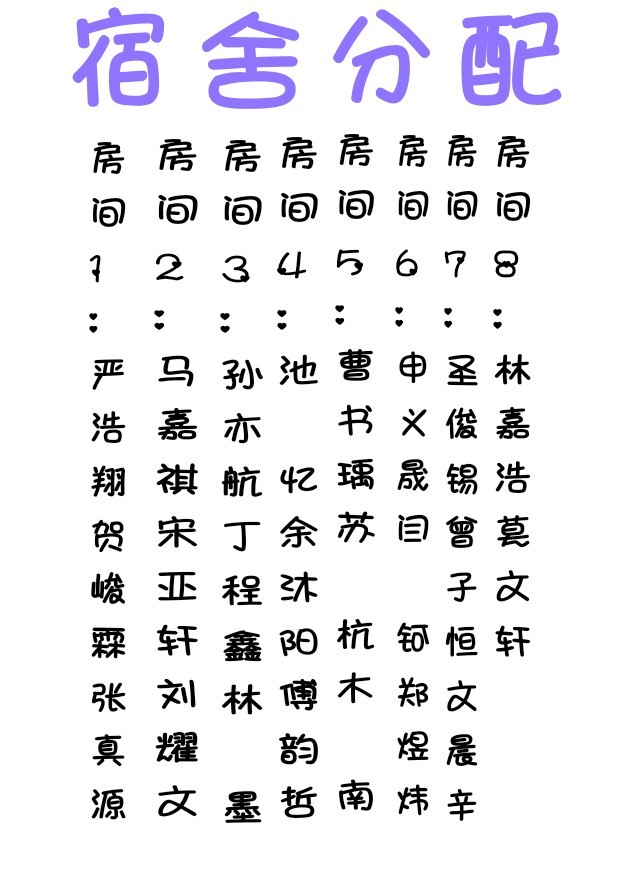 宿舍分配
房间1：严浩翔贺峻霖张真源
房间2：马嘉祺宋亚轩刘耀文
房间3：孙亦航丁程鑫林 墨
房间4：池 忆余沐阳傅韵哲
房间5：曹书瑀苏 杭木 南
房间6：申义晟闫 钶郑煜炜
房间7：圣俊锡曾子恒文晨辛
房间8：林嘉浩莫文轩